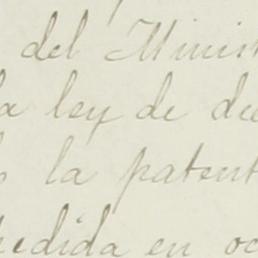 del Minis
a ley de de
la patent
edida en oc